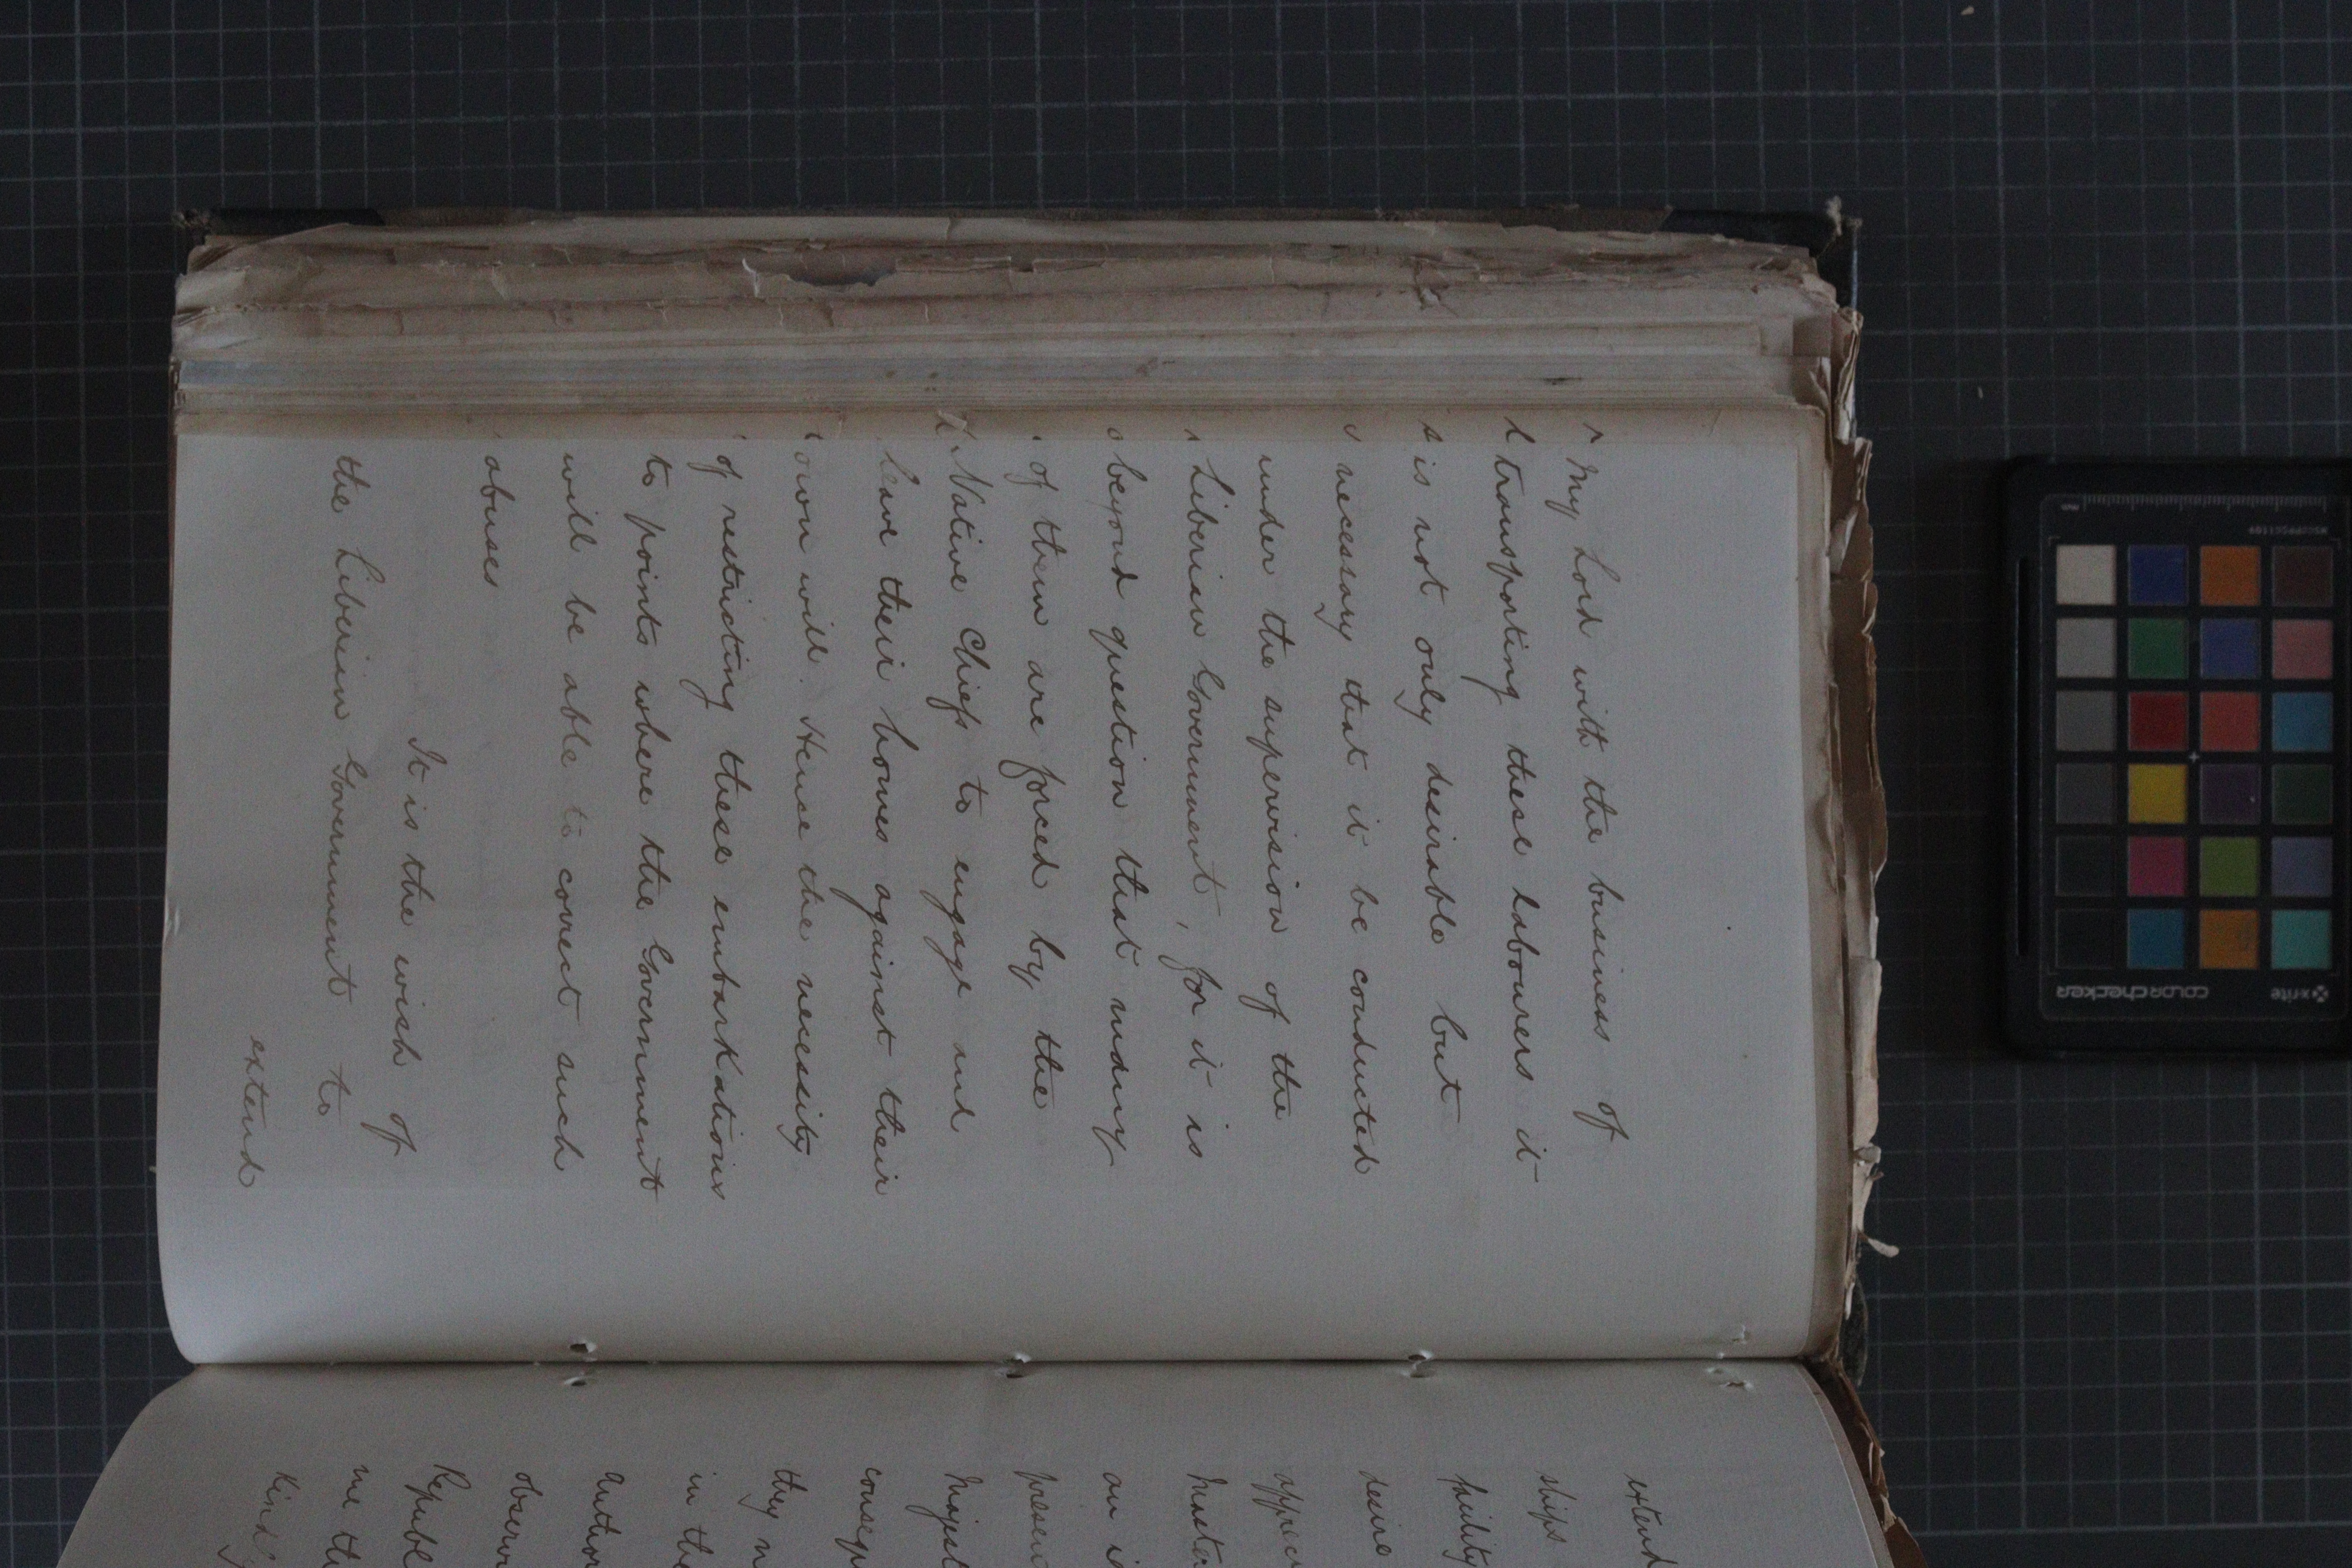 My Lord with the business of
transporting these labourers it
is not only desirable but
necessary that it be conducted
under the supervision of the
Liberian Government, for it is
beyond question that many
of them are forced by the
Native Chiefs to engage and
leave their homes against their
own will. Hence the necessity
of restricting these embarkations
to points where the Government
will be able to correct such
abuses
It is the wish of
the Liberian Government to
extend
extend
ships
desire
an
they
in the
me
Kind
x-rite
colorchecker